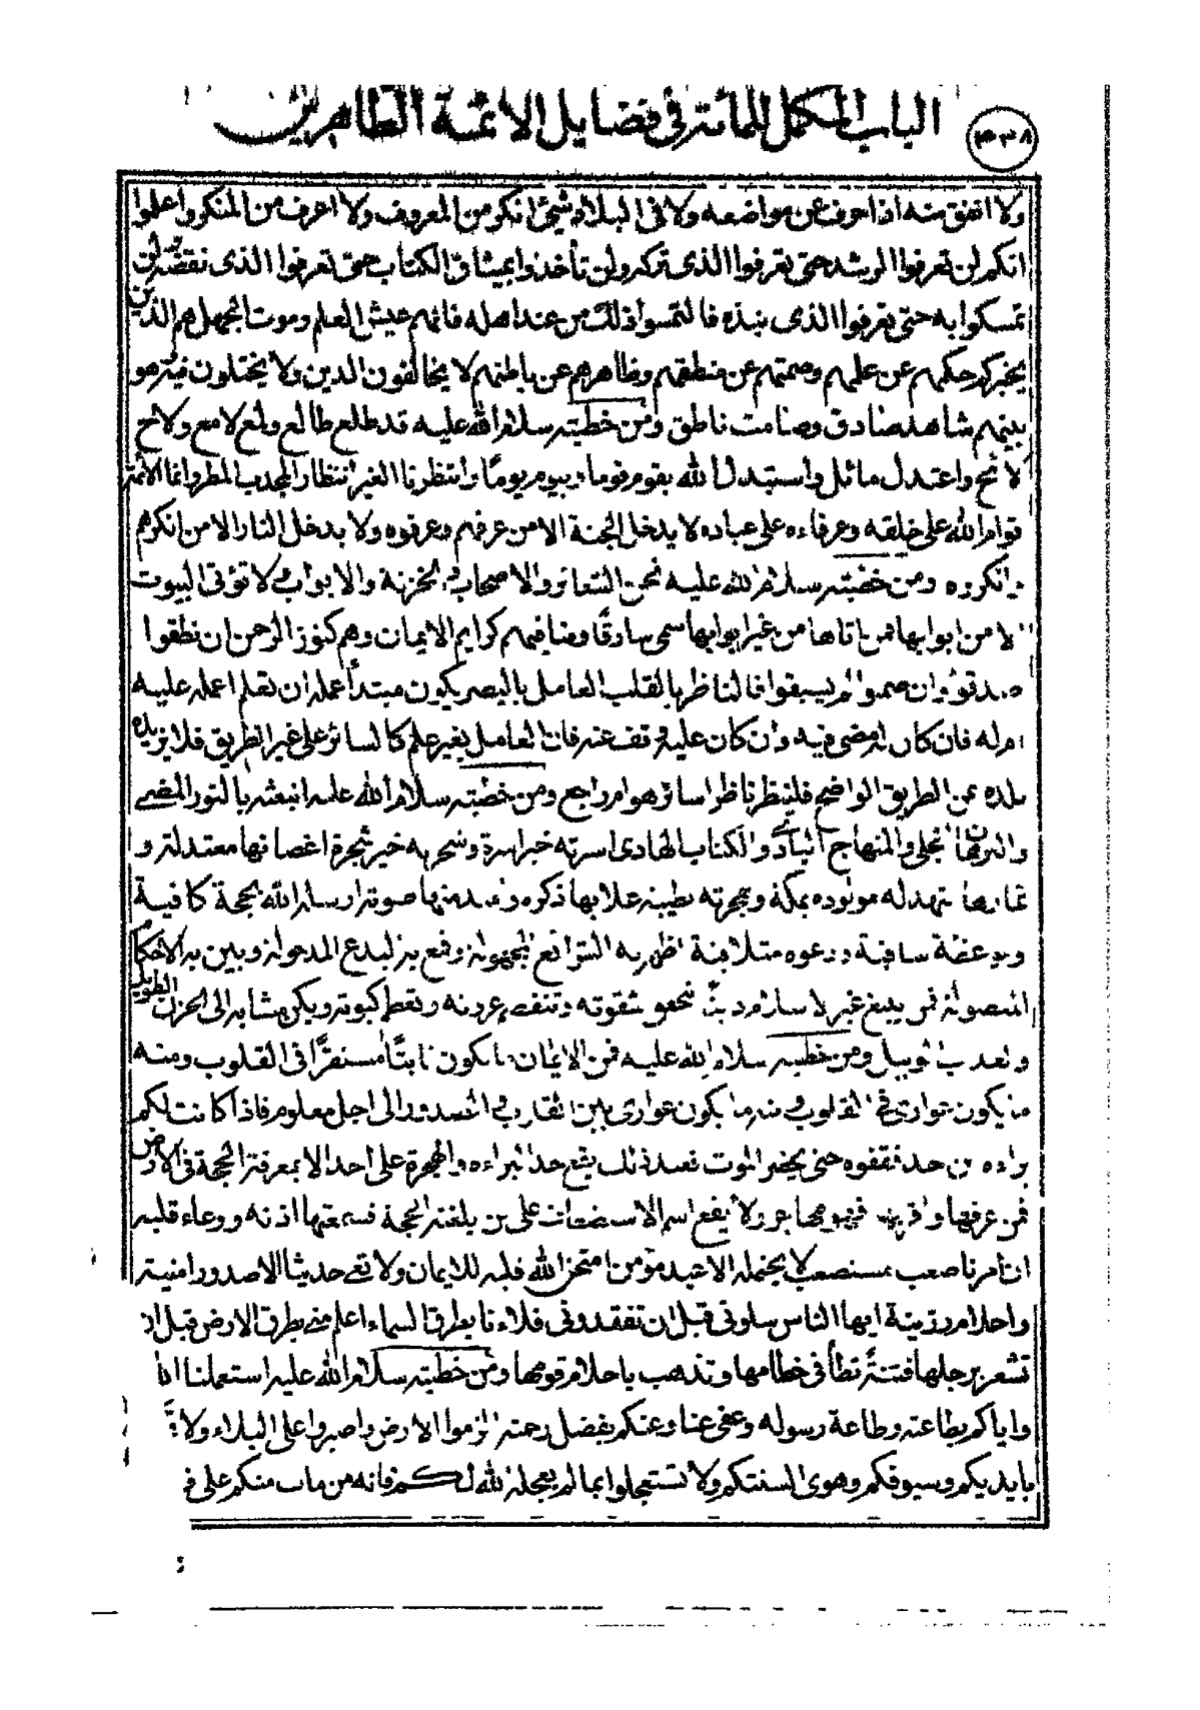 الباب المكمل للمائة في فضايل الائمة الطاهرين
٤٣٨
ولا انفق منه اذا حرف عن مواضعه ولا في البلاد شيئ انكر من المعروف ولا اعرف من المنكر واعلموا
انكم لن تعرفوا الرشد حتى تعرفوا الذى تركه ولن تأخذوا بميثاق الكتاب حتى تعرفوا الذى نقضه ولن
تمسكوا به حتى تعرفوا الذى نبذه فالتمسوا ذلك من عند اهله فانهم عيش العلم وموت الجهل هم الذين
يخبركم حكمهم عن علمهم وصمتهم عن منطقهم وظاهرهم عن باطنهم لا يخالفون الدين ولا يختلون فيه هو
بينهم شاهد صادق وصامت ناطق ومن خطبته سلام الله عليه قد طلع طالع ولمع لامع ولاح
لائح واعتدل مائل واستبدل الله بقوم قوما وبيوم يوما وانتظرنا الغير انتظار المجدب المطر وانما الائمة
قوام الله على خلقه وعرفاءه على عباده لا يدخل الجنة الا من عرفهم وعرفوه ولا يدخل النار الا من انكرهم
وانكروه ومن خطبته سلام الله عليه نحن الشعائر والاصحاب والخزنة والابواب لا تؤتى البيوت
الا من ابوابها فمن اتاها من غير ابوابها سمى سارقا ومنها فيهم كرايم الايمان وهم كنوز الرحمن ان نطقوا
صدقوا وان صمتوا لم يسبقوا فالناظر بالقلب العامل بالبصر يكون مبتدأ عمله ان يعلم اعمله عليه
ام له فان كان له مضى فيه وان كان عليه وقف عنه فان العامل بغير علم كالسائر على غير الطريق فلا يزيده
بعده عن الطريق الواضح فلينظر ناظر اسائر هو ام راجع ومن خطبته سلام الله عليه انبعثه بالنور المضيئ
والبرهان الجلى والمنهاج البادى والكتاب الهادى اسرته خير اسرة وشجرته خير شجرة اغصانها معتدلة و
ثمارها متهدلة مولوده بمكة وهجرته بطيبة علا بها ذكره وامتد منها صوته ارسله الله بحجة كافية
وموعظة شافية ودعوة متلافية اظهر به الشرائع المجهولة وقمع به البدع المدخولة وبين به الاحكام
المفصولة فمن يبتغ غير الاسلام دينا تتحقق شقوته وتنفصم عروته وتعظم كبوته ويكن مثابه الى الحزن الطويل
والعذاب الوبيل ومن خطبته سلام الله عليه فمن الايمان ما يكون ثابتا مستقرا في القلوب ومنه
ما يكون عوارى في القلوب ومنه ما يكون عوارى بين القلوب والصدور الى اجل معلوم فاذا كانت لكم
براءه من احد فقفوه حتى يحضر الموت فعند ذلك يقع حد البراءه والهجرة على احد الا بمعرفة الحجة في الارض
فمن عرفها واقر بها فهو مهاجر ولا يقع اسم الاستضعاف على من بلغته الحجة فسمعتها اذنه ووعاء قلبه
ان امرنا صعب مستصعب لا يحتمله الا عبد مؤمن امتحن الله قلبه للايمان ولا تعى حديثا الا صدور امنية
واحلام رزينة ايها الناس سلونى قبل ان تفقدونى فلاءنا بطرق السماء اعلم منى بطرق الارض قبل ان
تشعر برجلها فتنة تطأ في خطامها وتذهب باحلام قومها ومن خطبته سلام الله عليه استعملنا الله
واياكم بطاعته وطاعة رسوله وعفى عنا وعنكم بفضل رحمته الزموا الارض واصبروا على البلاء ولا
بايديكم وسيوفكم وهوى السنتكم ولا تستعجلوا بما لم يعجله الله لكم فانه من مات منكم على